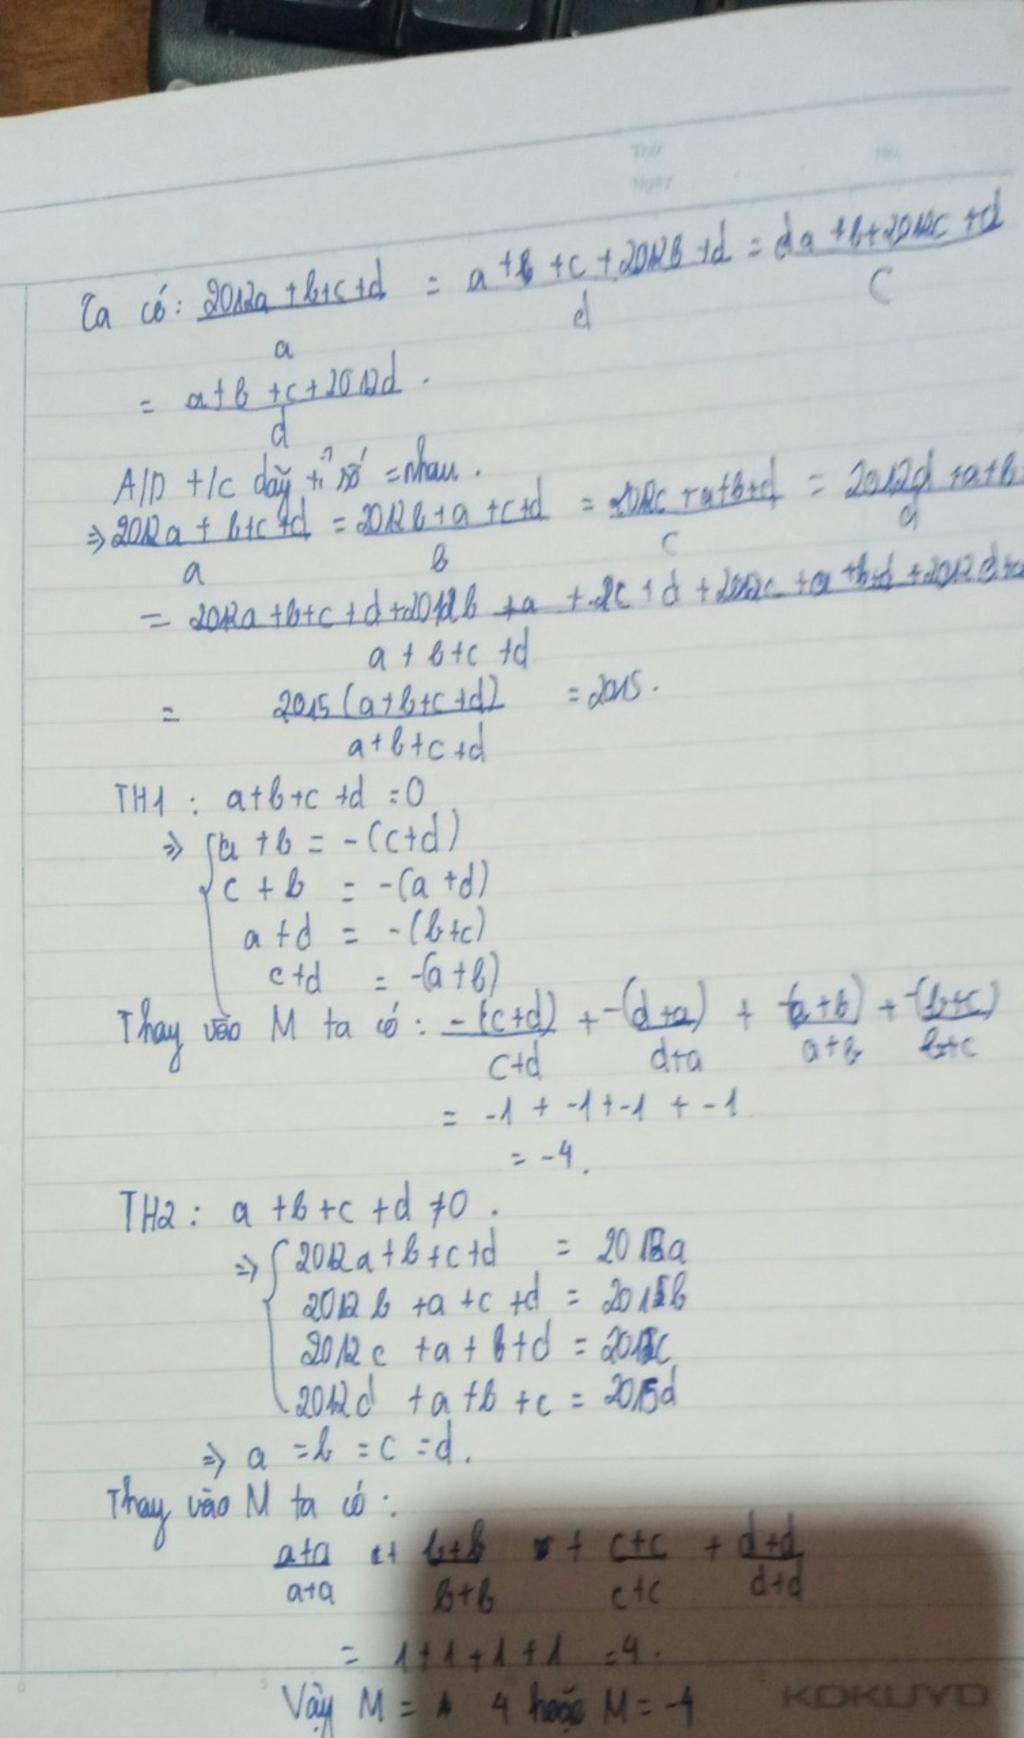 Thứ
Ngày
No.
Ta có: \frac{2012a+b+c+d}{a} = \frac{a+b+c+2012b+d}{d} = \frac{da+b+2012c+d}{c}
= \frac{a+b+c+2012d}{d}.
A/D t/c dãy tỉ số = nhau.
⇒ \frac{2012a+b+c+d}{a} = \frac{2012b+a+c+d}{b} = \frac{2012c+a+b+d}{c} = \frac{2012d+a+b}{d}
= \frac{2012a+b+c+d+2012b+a+c+d+2012c+a+b+d+2012d+a}{a+b+c+d}
= \frac{2015(a+b+c+d)}{a+b+c+d} = 2015.
TH1: a+b+c+d=0
⇒ { a+b = -(c+d)
c+b = -(a+d)
a+d = -(b+c)
c+d = -(a+b)
Thay vào M ta có: \frac{-(c+d)}{c+d} + \frac{-(d+a)}{d+a} + \frac{-(a+b)}{a+b} + \frac{-(b+c)}{b+c}
= -1 + -1 + -1 + -1
= -4.
TH2: a+b+c+d ≠ 0.
⇒ { 2012a+b+c+d = 2015a
2012b+a+c+d = 2015b
2012c+a+b+d = 2015c
2012d+a+b+c = 2015d
⇒ a=b=c=d.
Thay vào M ta có:
\frac{a+a}{a+a} + \frac{b+b}{b+b} + \frac{c+c}{c+c} + \frac{d+d}{d+d}
= 1+1+1+1 = 4.
Vậy M = 4 hoặc M = -4
KOKUYO